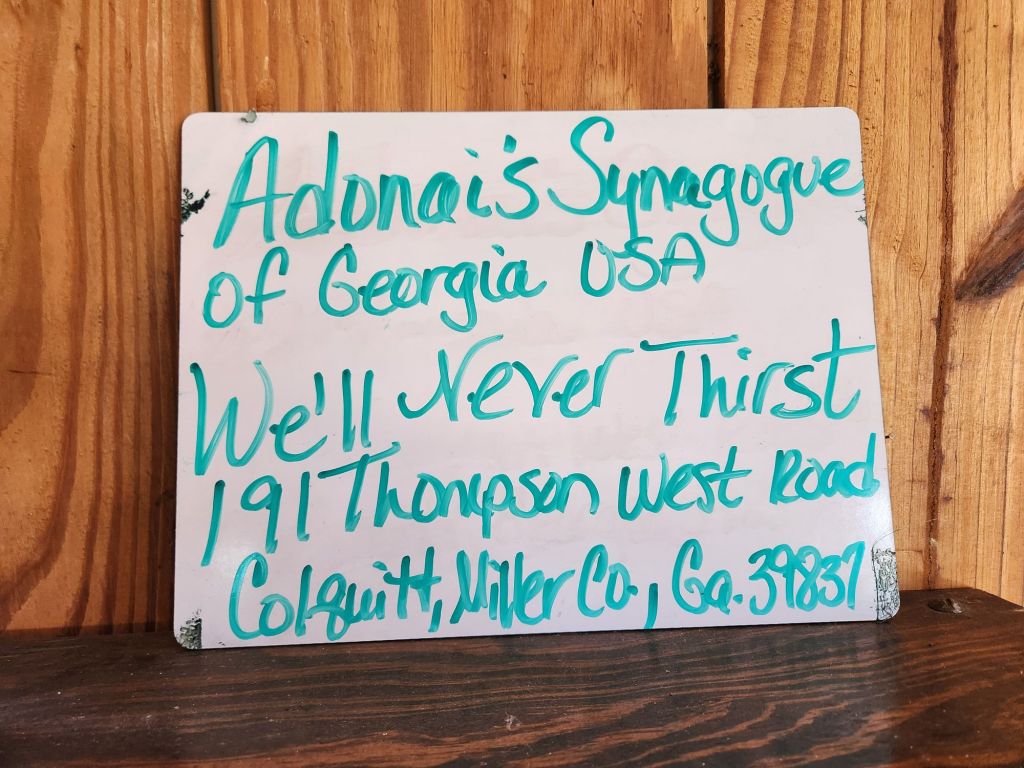 Adonai's Synagogue
of Georgia USA
We'll Never Thirst
191 Thompson West Road
Colquitt, Miller Co., Ga. 39837